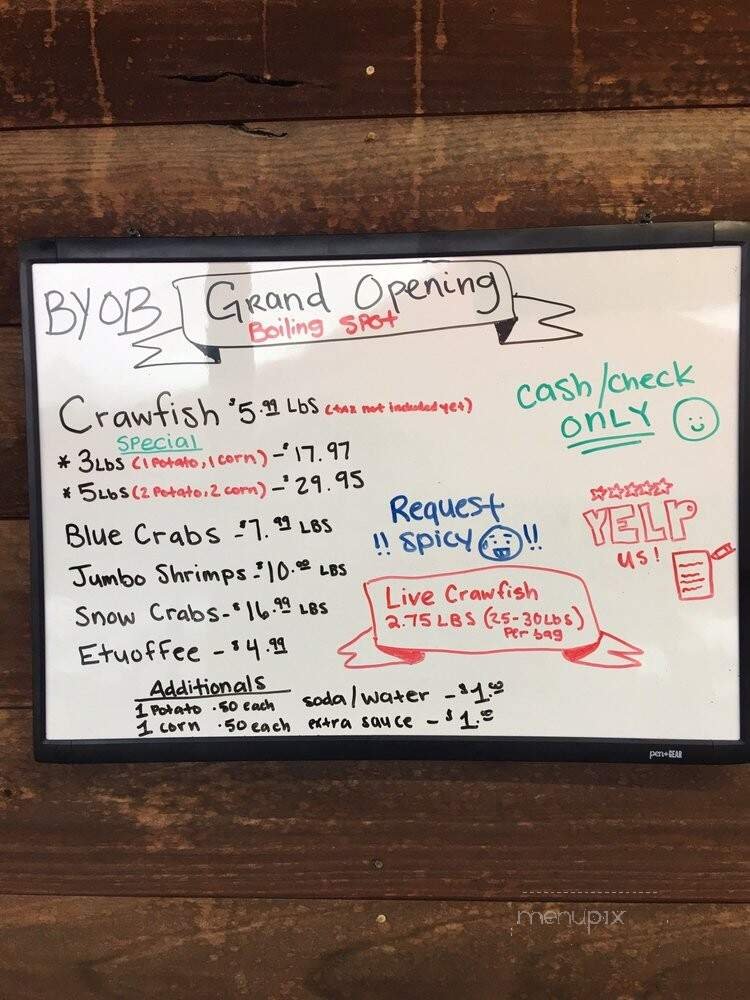 BYOB Grand Opening
Boiling Spot
Crawfish $5.99 LBS (tax not included yet)
cash/check
ONLY
Special
* 3LBS (1 Potato, 1 corn) - $17.97
* 5LBS (2 Potato, 2 corn) - $29.95
Blue Crabs - $7.99 LBS
Request
!! spicy !!
YELP
us!
Jumbo Shrimps - $10.00 LBS
Snow Crabs - $16.99 LBS
Live Crawfish
2.75 LBS (25-30LBS)
Per bag
Etuoffee - $4.99
Additionals
1 Potato .50 each soda/water - $1.00
1 corn .50 each extra sauce - $1.00
pen+GEAR
menupix